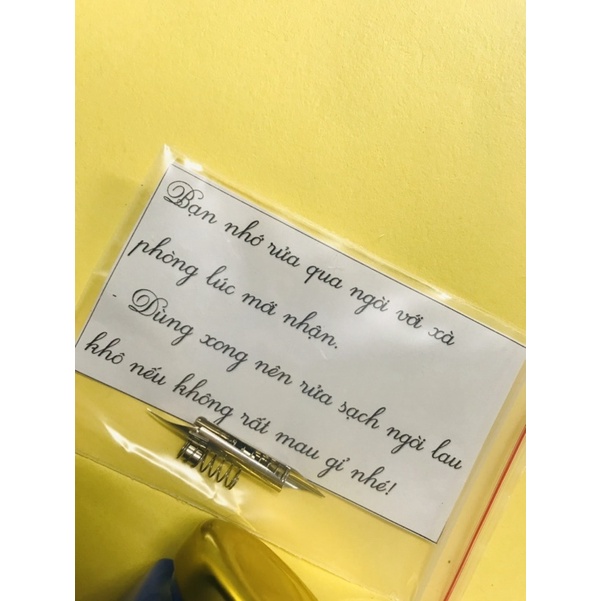 Bạn nhớ rửa qua ngòi với xà
phòng lúc mới nhận.
- Dùng xong nên rửa sạch ngòi lau
khô nếu không rất mau gỉ nhé!